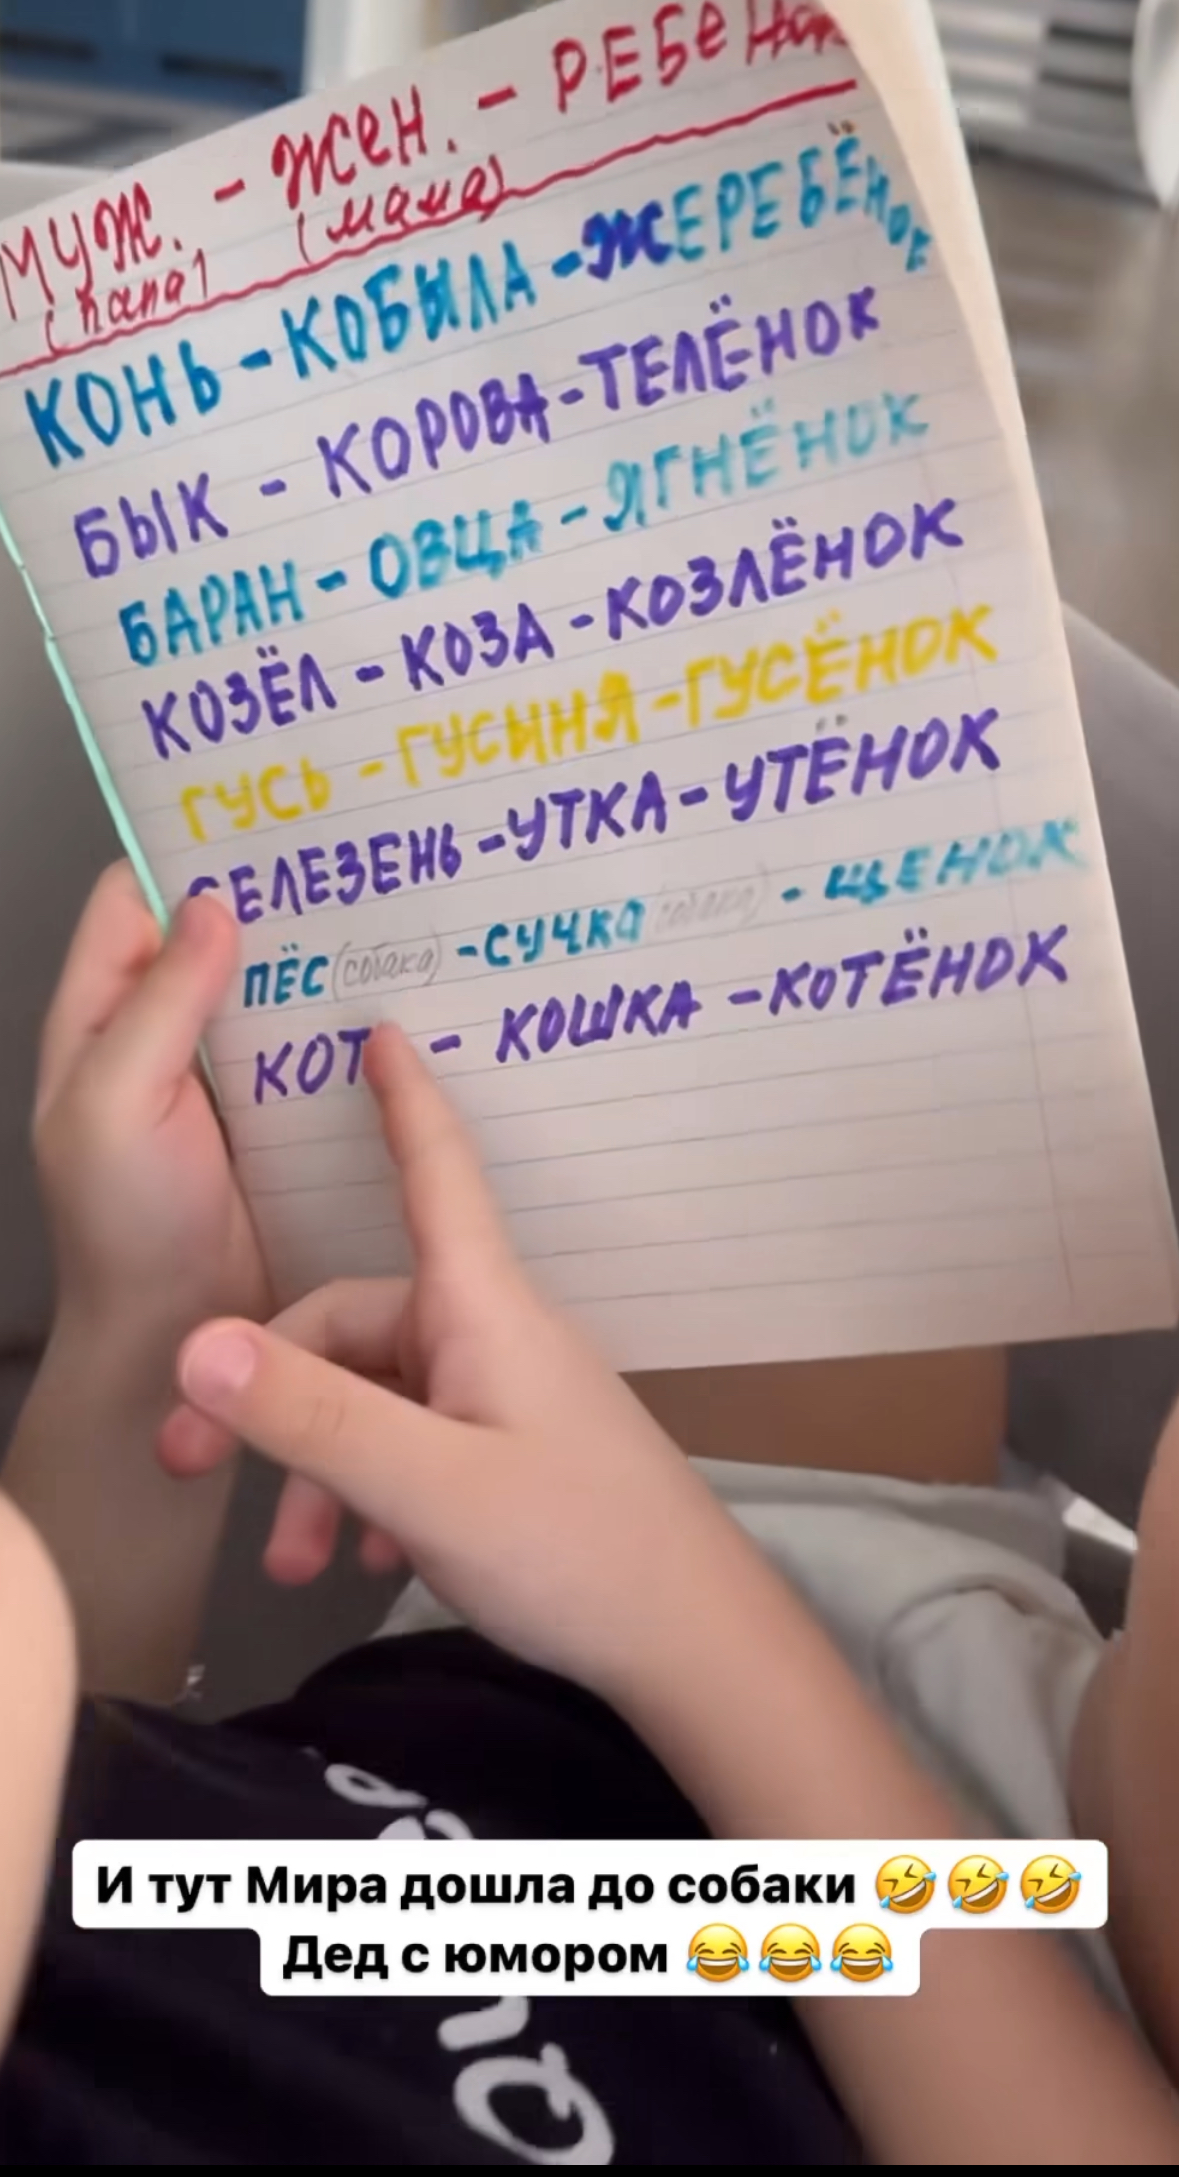 МУЖ. - Жен. - РЕБеНок
(папа) (мама)
КОНЬ - КОБЫЛА - ЖЕРЕБЁНОК
БЫК - КОРОВА - ТЕЛЁНОК
БАРАН - ОВЦА - ЯГНЁНОК
КОЗЁЛ - КОЗА - КОЗЛЁНОК
ГУСЬ - ГУСЫНЯ - ГУСЁНОК
СЕЛЕЗЕНЬ - УТКА - УТЁНОК
ПЁС (собака) - СУЧКА (собака) - ЩЕНОК
КОТ - КОШКА - КОТЁНОК
И тут Мира дошла до собаки 🤣🤣🤣
Дед с юмором 😂😂😂